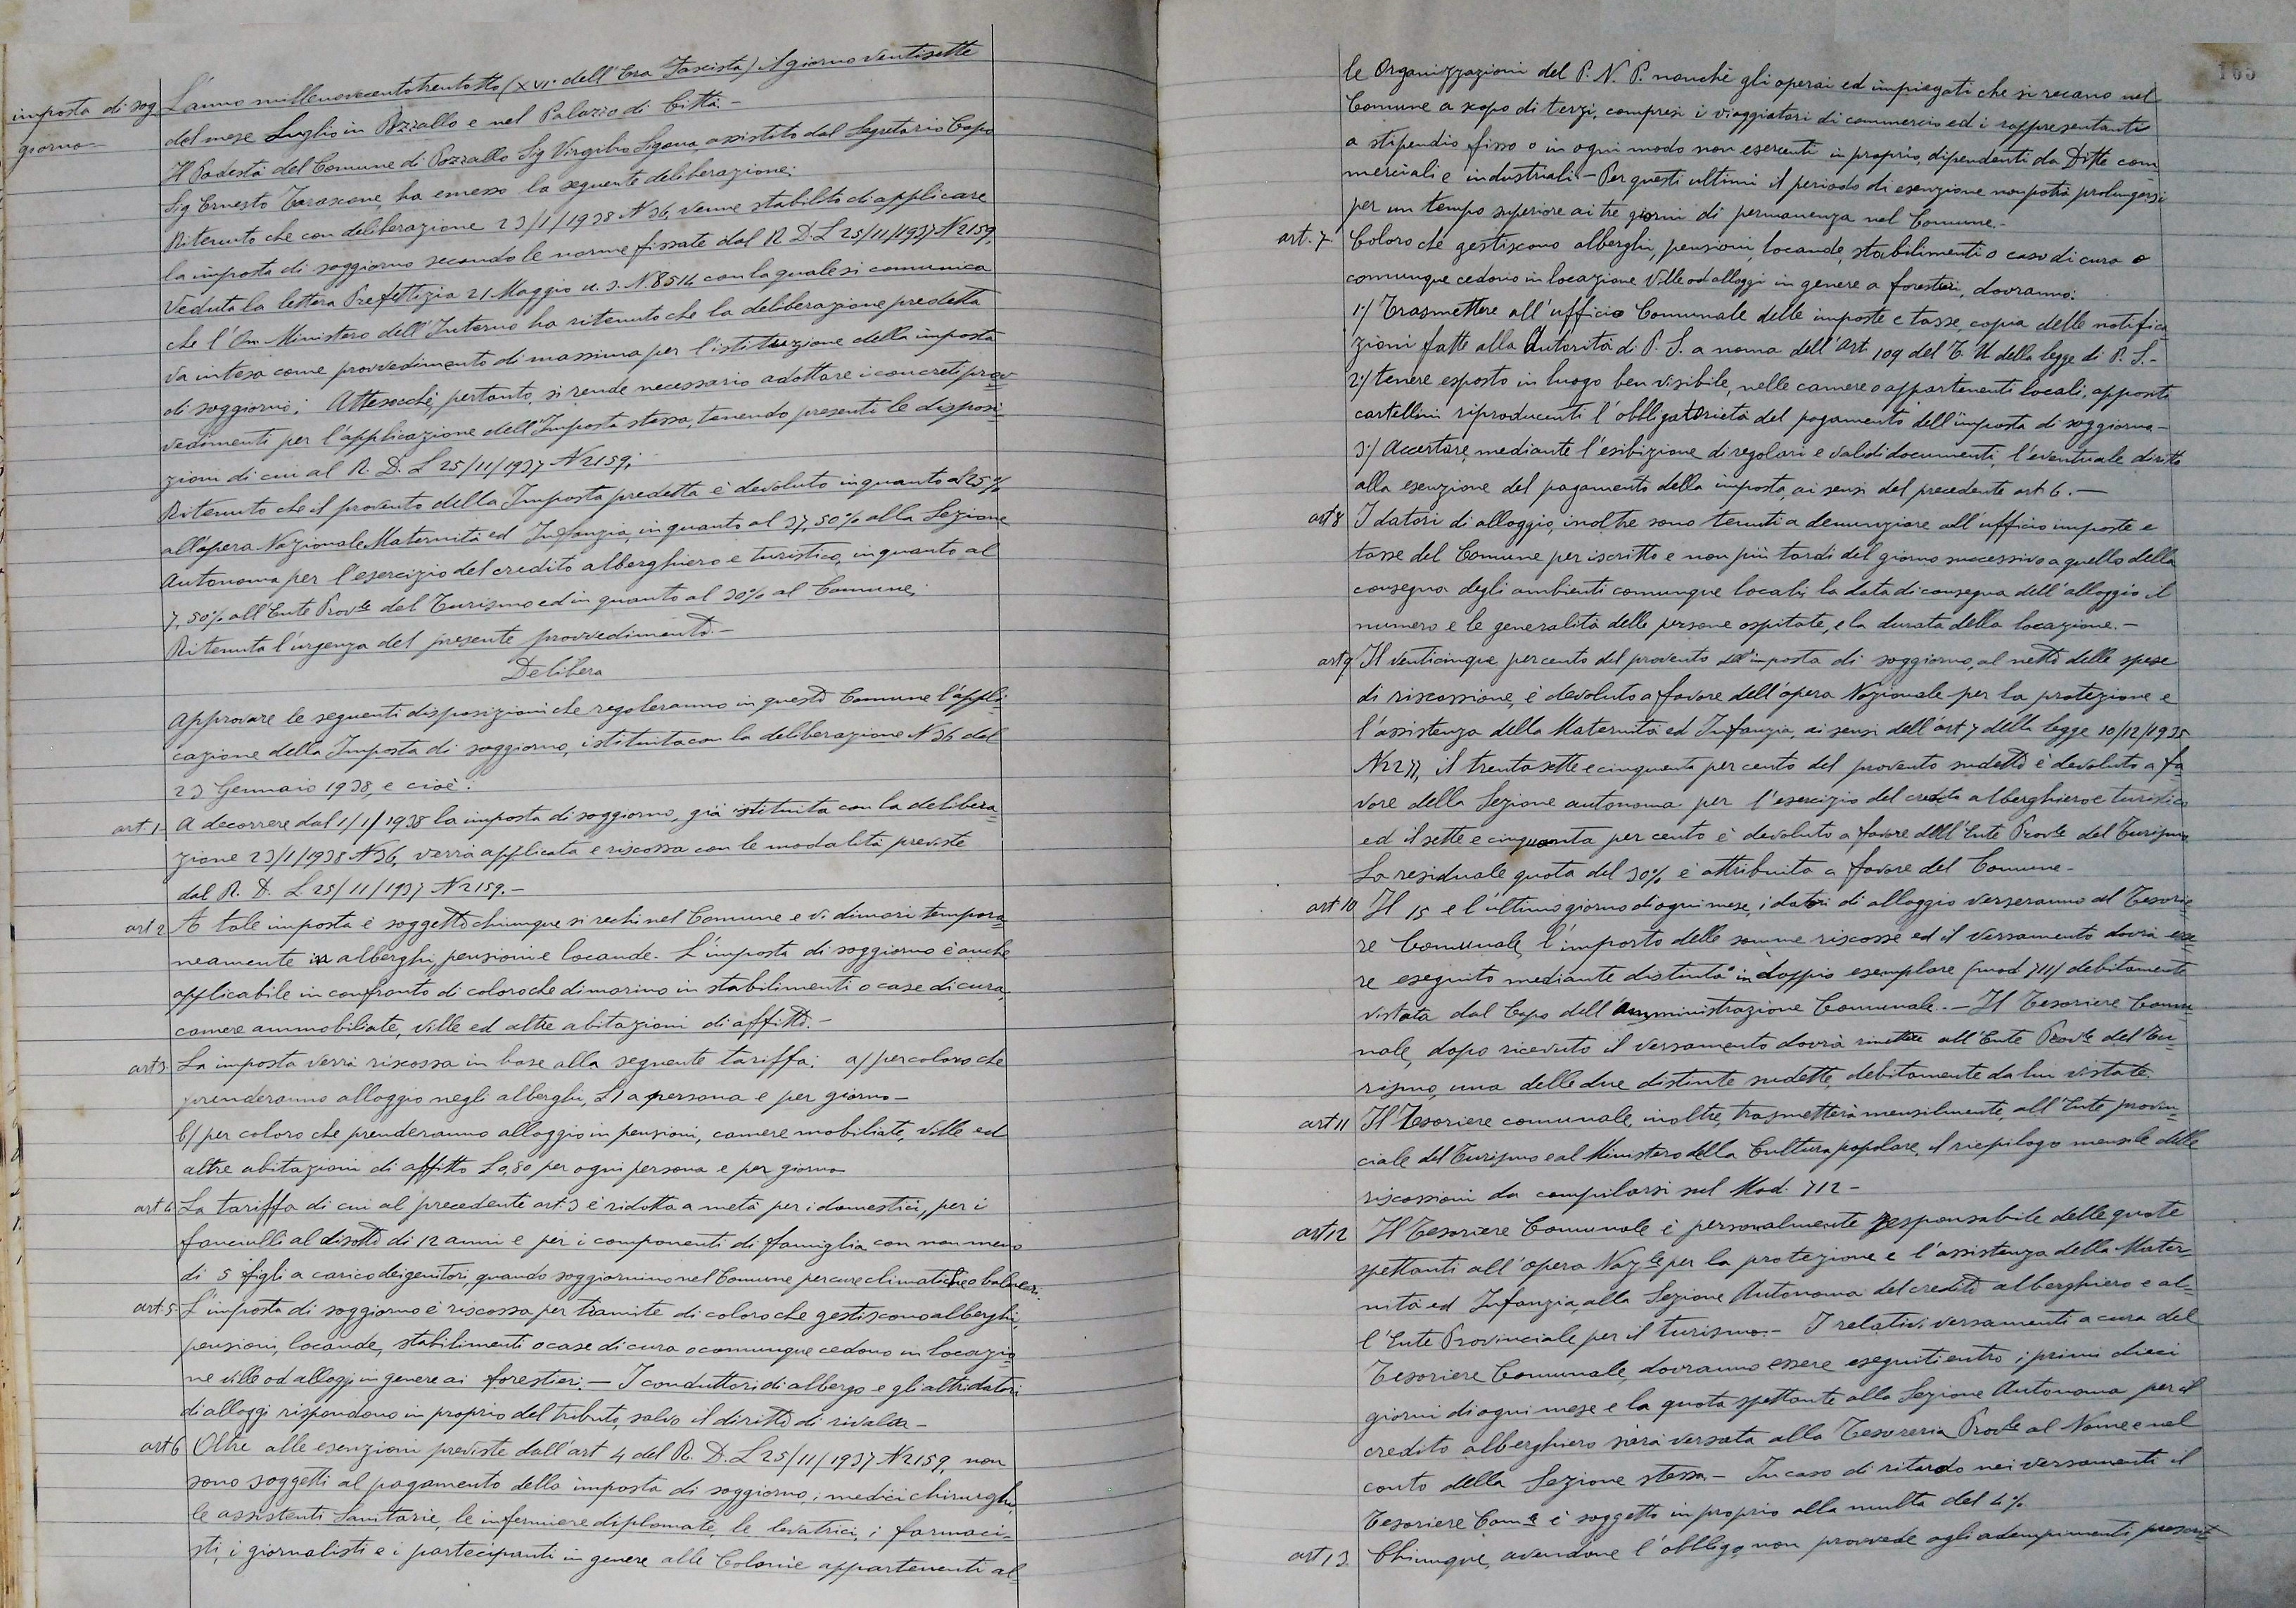 imposta di sog
giorno-
L'anno millenovecentotrentotto (XVI° dell'Era Fascista) il giorno ventisette
del mese Luglio in Pozzallo e nel Palazzo di Città.-
Il Podestà del Comune di Pozzallo Sig Virgilio Sigona assistito dal Segretario Capo
Sig Ernesto Tarascone, ha emesso la seguente deliberazione:
Ritenuto che con deliberazione 23/1/1938 N 36, venne stabilito di applicare
la imposta di soggiorno secondo le norme fissate dal R. D. L 25/11/1937 N 2159,
Veduta la lettera Prefettizia 21 Maggio u. s. N. 8514 con la quale si comunica
che l'On. Ministero dell'Interno ha ritenuto che la deliberazione predetta
va intesa come provvedimento di massima per l'istituzione della imposta
di soggiorno; Attesocché, pertanto, si rende necessario adottare i concreti prov
vedimenti per l'applicazione dell'Imposta stessa, tenendo presenti le disposi=
zioni di cui al R. D. L 25/11/1937 N 2159;
Ritenuto che il provento della Imposta predetta è devoluto in quanto al 25%
all'opera Nazionale Maternità ed Infanzia, in quanto al 37,50% alla Sezione
Autonoma per l'esercizio del credito alberghiero e turistico, in quanto al
7,50% all'Ente Prov.le del Turismo ed in quanto al 30% al Comune;
Ritenuta l'urgenza del presente provvedimento.-
Delibera
Approvare le seguenti disposizioni che regoleranno in questo Comune l'appli=
cazione della Imposta di soggiorno, istituita con la deliberazione N 36 del
23 Gennaio 1938, e cioè:
art. 1 A decorrere dal 1/1/1938 la imposta di soggiorno, già istituita con la delibera=
zione 23/1/1938 N 36, verrà applicata e riscossa con le modalità previste
dal R. D. L 25/11/1937 N 2159.-
art 2 A tale imposta è soggetto chiunque si rechi nel Comune e vi dimori tempora=
neamente in alberghi, pensioni e locande- L'imposta di soggiorno è anche
applicabile in confronto di coloro che dimorino in stabilimenti o case di cura,
camere ammobiliate, ville ed altre abitazioni di affitto.-
art 3. La imposta verrà riscossa in base alla seguente tariffa: a/ per coloro che
prenderanno alloggio negli alberghi, L 1 a persona e per giorno-
b/ per coloro che prenderanno alloggio in pensioni, camere mobiliate, ville ed
altre abitazioni di affitto L 0,50 per ogni persona e per giorno
art 4 La tariffa di cui al precedente art. 3 è ridotta a metà per i domestici, per i
fanciulli al disotto di 12 anni e per i componenti di famiglia con non meno
di 5 figli a carico dei genitori, quando soggiornino nel Comune per cure climatiche o balneari.
art. 5 L'imposta di soggiorno è riscossa per tramite di coloro che gestiscono alberghi,
pensioni, locande, stabilimenti o case di cura o comunque cedono in locazio
ne ville od alloggi in genere ai forestieri.- I conduttori di albergo e gli altri datori
di alloggi rispondono in proprio del tributo, salvo il diritto di rivalsa-
art 6 Oltre alle esenzioni previste dall'art 4 del R. D. L 25/11/1937 N 2159, non
sono soggetti al pagamento della imposta di soggiorno, i medici chirurghi,
le assistenti Sanitarie, le infermiere diplomate, le levatrici, i farmaci=
sti, i giornalisti e i partecipanti in genere alle Colonie appartenenti al=
165
le Organizzazioni del P. N. P. nonché gli operai ed impiegati che si recano nel
Comune a scopo di terzi, compresi i viaggiatori di commercio ed i rappresentanti
a stipendio fisso o in ogni modo non esercenti in proprio, dipendenti da Ditte com
merciali e industriali- Per questi ultimi il periodo di esenzione non potrà prolungarsi
per un tempo superiore ai tre giorni di permanenza nel Comune.-
art. 7 Coloro che gestiscono alberghi, pensioni, locande, stabilimenti o case di cura o
comunque cedono in locazione Ville od alloggi in genere a forestieri, dovranno:
1/ Trasmettere all'ufficio Comunale delle imposte e tasse, copia delle notifica
zioni fatte alla Autorità di P. S. a norma dell'Art. 109 del T. U della legge di P. S.-
2/ tenere esposto in luogo ben visibile, nelle camere o appartenenti locali, appositi
cartellini riproducenti l'obbligatorietà del pagamento dell'imposta di soggiorno-
3/ Accertare, mediante l'esibizione di regolari e validi documenti, l'eventuale diritto
alla esenzione del pagamento della imposta, ai sensi del precedente art 6.-
art 8 I datori di alloggio, inoltre sono tenuti a denunziare all'ufficio imposte e
tasse del Comune per iscritto e non più tardi del giorno successivo a quello della
consegna degli ambienti comunque locati, la data di consegna dell'alloggio il
numero e le generalità delle persone ospitate, e la durata della locazione.-
art 9 Il venticinque percento del provento dell'imposta di soggiorno, al netto delle spese
di riscossione, è devoluto a favore dell'opera Nazionale per la protezione e
l'assistenza della Maternità ed Infanzia, ai sensi dell'art 7 della legge 10/12/1925
N 2277, il trentasette e cinquanta per cento del provento sudetto è devoluto a fa
vore della Sezione autonoma per l'esercizio del credito alberghiero e turistico
ed il sette e cinquanta per cento è devoluto a favore dell'Ente Prov.le del Turismo
La residuale quota del 30% è attribuita a favore del Comune-
art 10 Il 15 e l'ultimo giorno di ogni mese, i datori di alloggio verseranno al Tesorie
re Comunale, l'importo delle somme riscosse ed il versamento dovrà esse
re eseguito mediante distinta in doppio esemplare (mod 711) debitamente
vistata dal Capo dell'Amministrazione Comunale.- Il Tesoriere Comu
nale, dopo ricevuto il versamento dovrà rimettere all'Ente Prov.le del Tu-
rismo, una delle due distinte sudette, debitamente da lui vistate.
art 11 Il Tesoriere comunale, inoltre, trasmetterà mensilmente, all'Ente provin
ciale del Turismo e al Ministero della Cultura popolare, il riepilogo mensile delle
riscossioni da compilarsi sul Mod. 712-
art 12 Il Tesoriere Comunale è personalmente responsabile delle quote
spettanti all'opera Naz.le per la protezione e l'assistenza della Mater
nità ed Infanzia, alla Sezione Autonoma del credito alberghiero e al=
l'Ente Provinciale per il turismo.- I relativi versamenti a cura del
Tesoriere Comunale, dovranno essere eseguiti entro i primi dieci
giorni di ogni mese e la quota spettante alla Sezione Autonoma per il
credito alberghiero sarà versata alla Tesoreria Prov.le al Nome e nel
conto della Sezione stessa- In caso di ritardo nei versamenti il
Tesoriere Com.le è soggetto in proprio alla multa del 4%
art 13 Chiunque, avendone l'obbligo, non provvede agli adempimenti prescrit